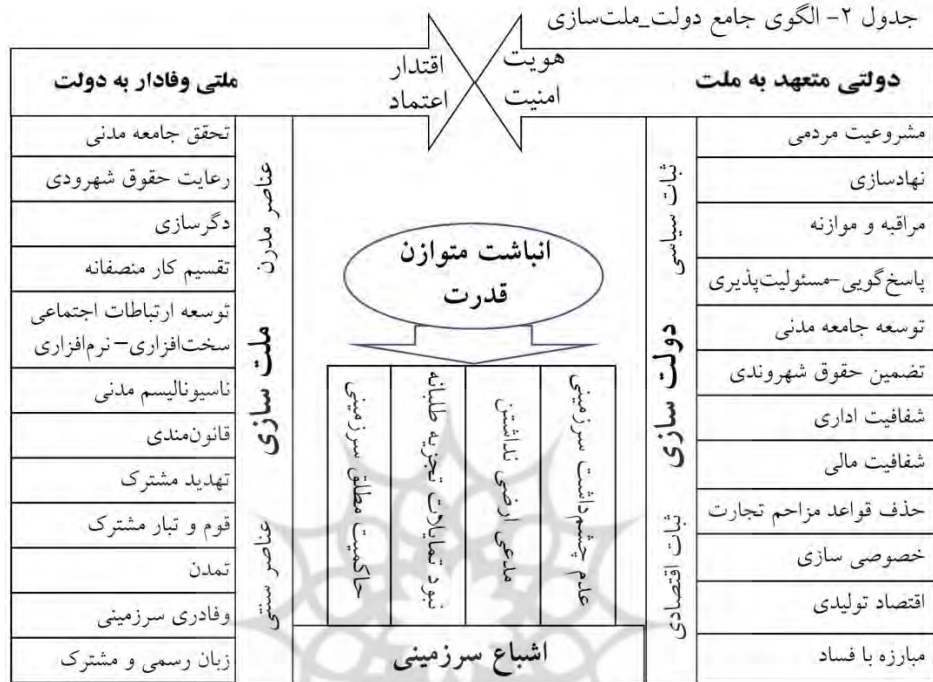 جدول ۲- الگوی جامع دولت_ملت‌سازی
هویت
امنیت
اقتدار
اعتماد
دولتی متعهد به ملت
ملتی وفادار به دولت
مشروعیت مردمی
نهادسازی
مراقبه و موازنه
پاسخ‌گویی-مسئولیت‌پذیری
توسعه جامعه مدنی
تضمین حقوق شهروندی
شفافیت اداری
شفافیت مالی
حذف قواعد مزاحم تجارت
خصوصی سازی
اقتصاد تولیدی
مبارزه با فساد
ثبات سیاسی
دولت سازی
ثبات اقتصادی
انباشت متوازن
قدرت
عدم چشم‌داشت سرزمینی
مدعی ارضی نداشتن
نبود تمایلات تجزیه طلبانه
حاکمیت مطلق سرزمینی
اشباع سرزمینی
عناصر مدرن
ملت سازی
عناصر سنتی
تحقق جامعه مدنی
رعایت حقوق شهرودی
دگرسازی
تقسیم کار منصفانه
توسعه ارتباطات اجتماعی
سخت‌افزاری–نرم‌افزاری
ناسیونالیسم مدنی
قانون‌مندی
تهدید مشترک
قوم و تبار مشترک
تمدن
وفادری سرزمینی
زبان رسمی و مشترک